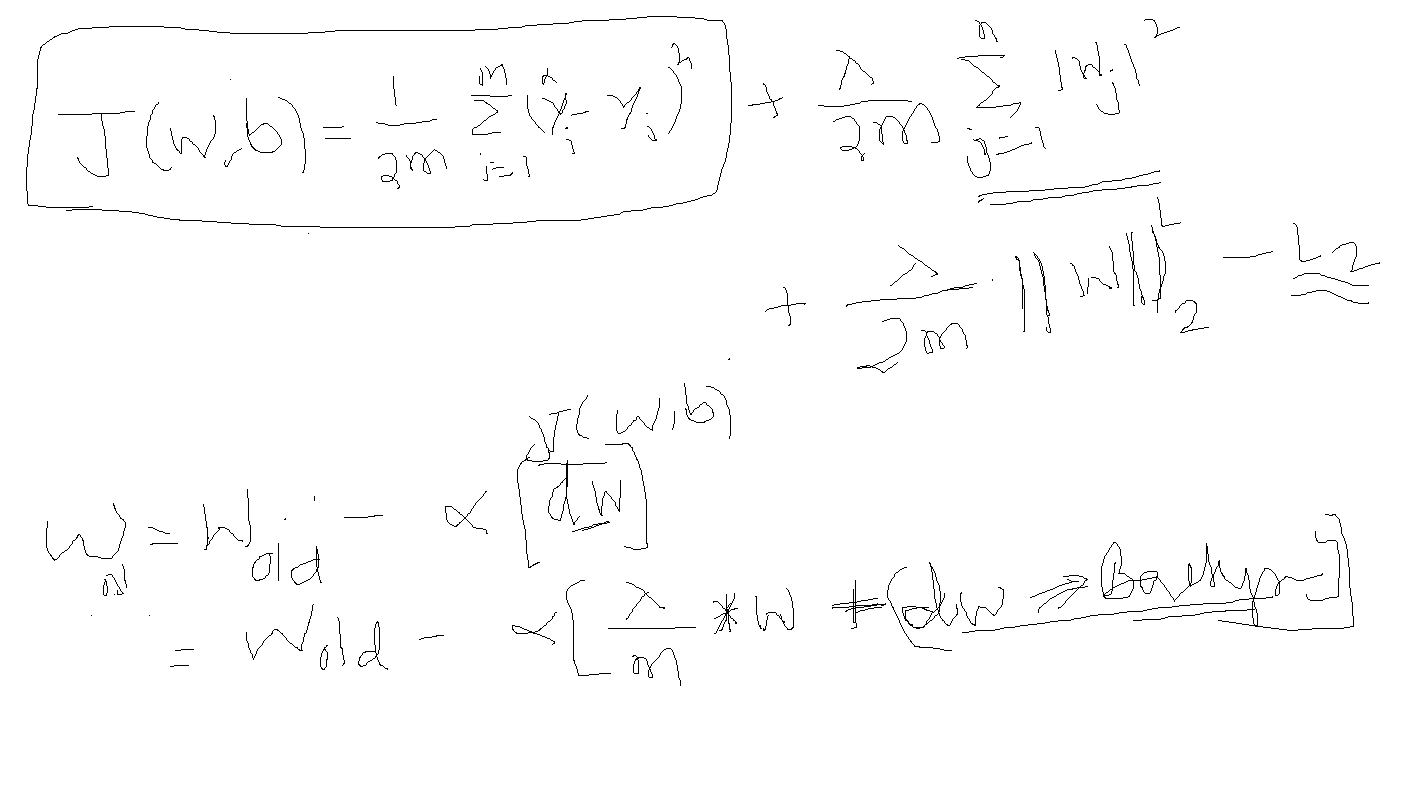 J(w,b) = 1/2m Σ_{i=1}^{m} (ŷ_i - y_i)^2 + λ/2m Σ_{j=1}^{n} |w_j|^2
+ λ/2m · ||w||_2^2 - L2
w_n = w_old - α [J(w,b)/dw]
= w_old - α [λ/m * w + (dw ⇒ Backprop)]